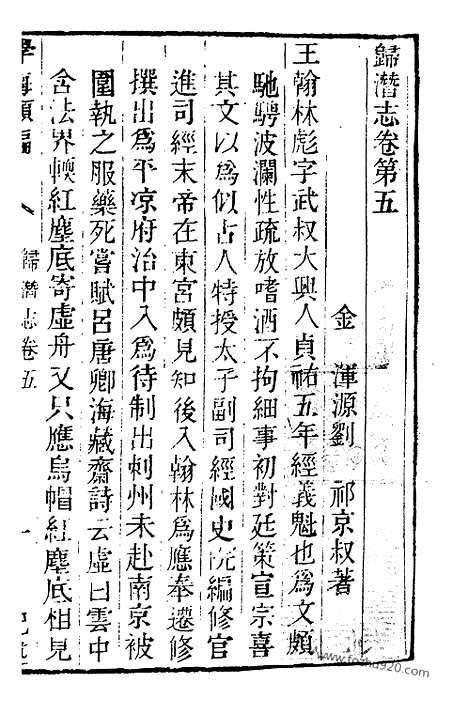 歸潛志卷第五
金 渾源劉 祁京叔著
王翰林彪字武叔大興人貞祐五年經義魁也爲文頗
馳騁波瀾性疏放嗜酒不拘細事初對廷策宣宗喜
其文以爲似古人特授太子副司經國史院編修官
進司經末帝在東宮頗見知後入翰林爲應奉遷修
撰出爲平凉府治中入爲待制出刺州未赴南京被
圍執之服藥死嘗賦呂唐卿海藏齋詩云虛白雲中
含法界輭紅塵底寄虛舟又只應烏帽紅塵底相見
學海類編
歸潛志卷五
一
www.foshu920.com